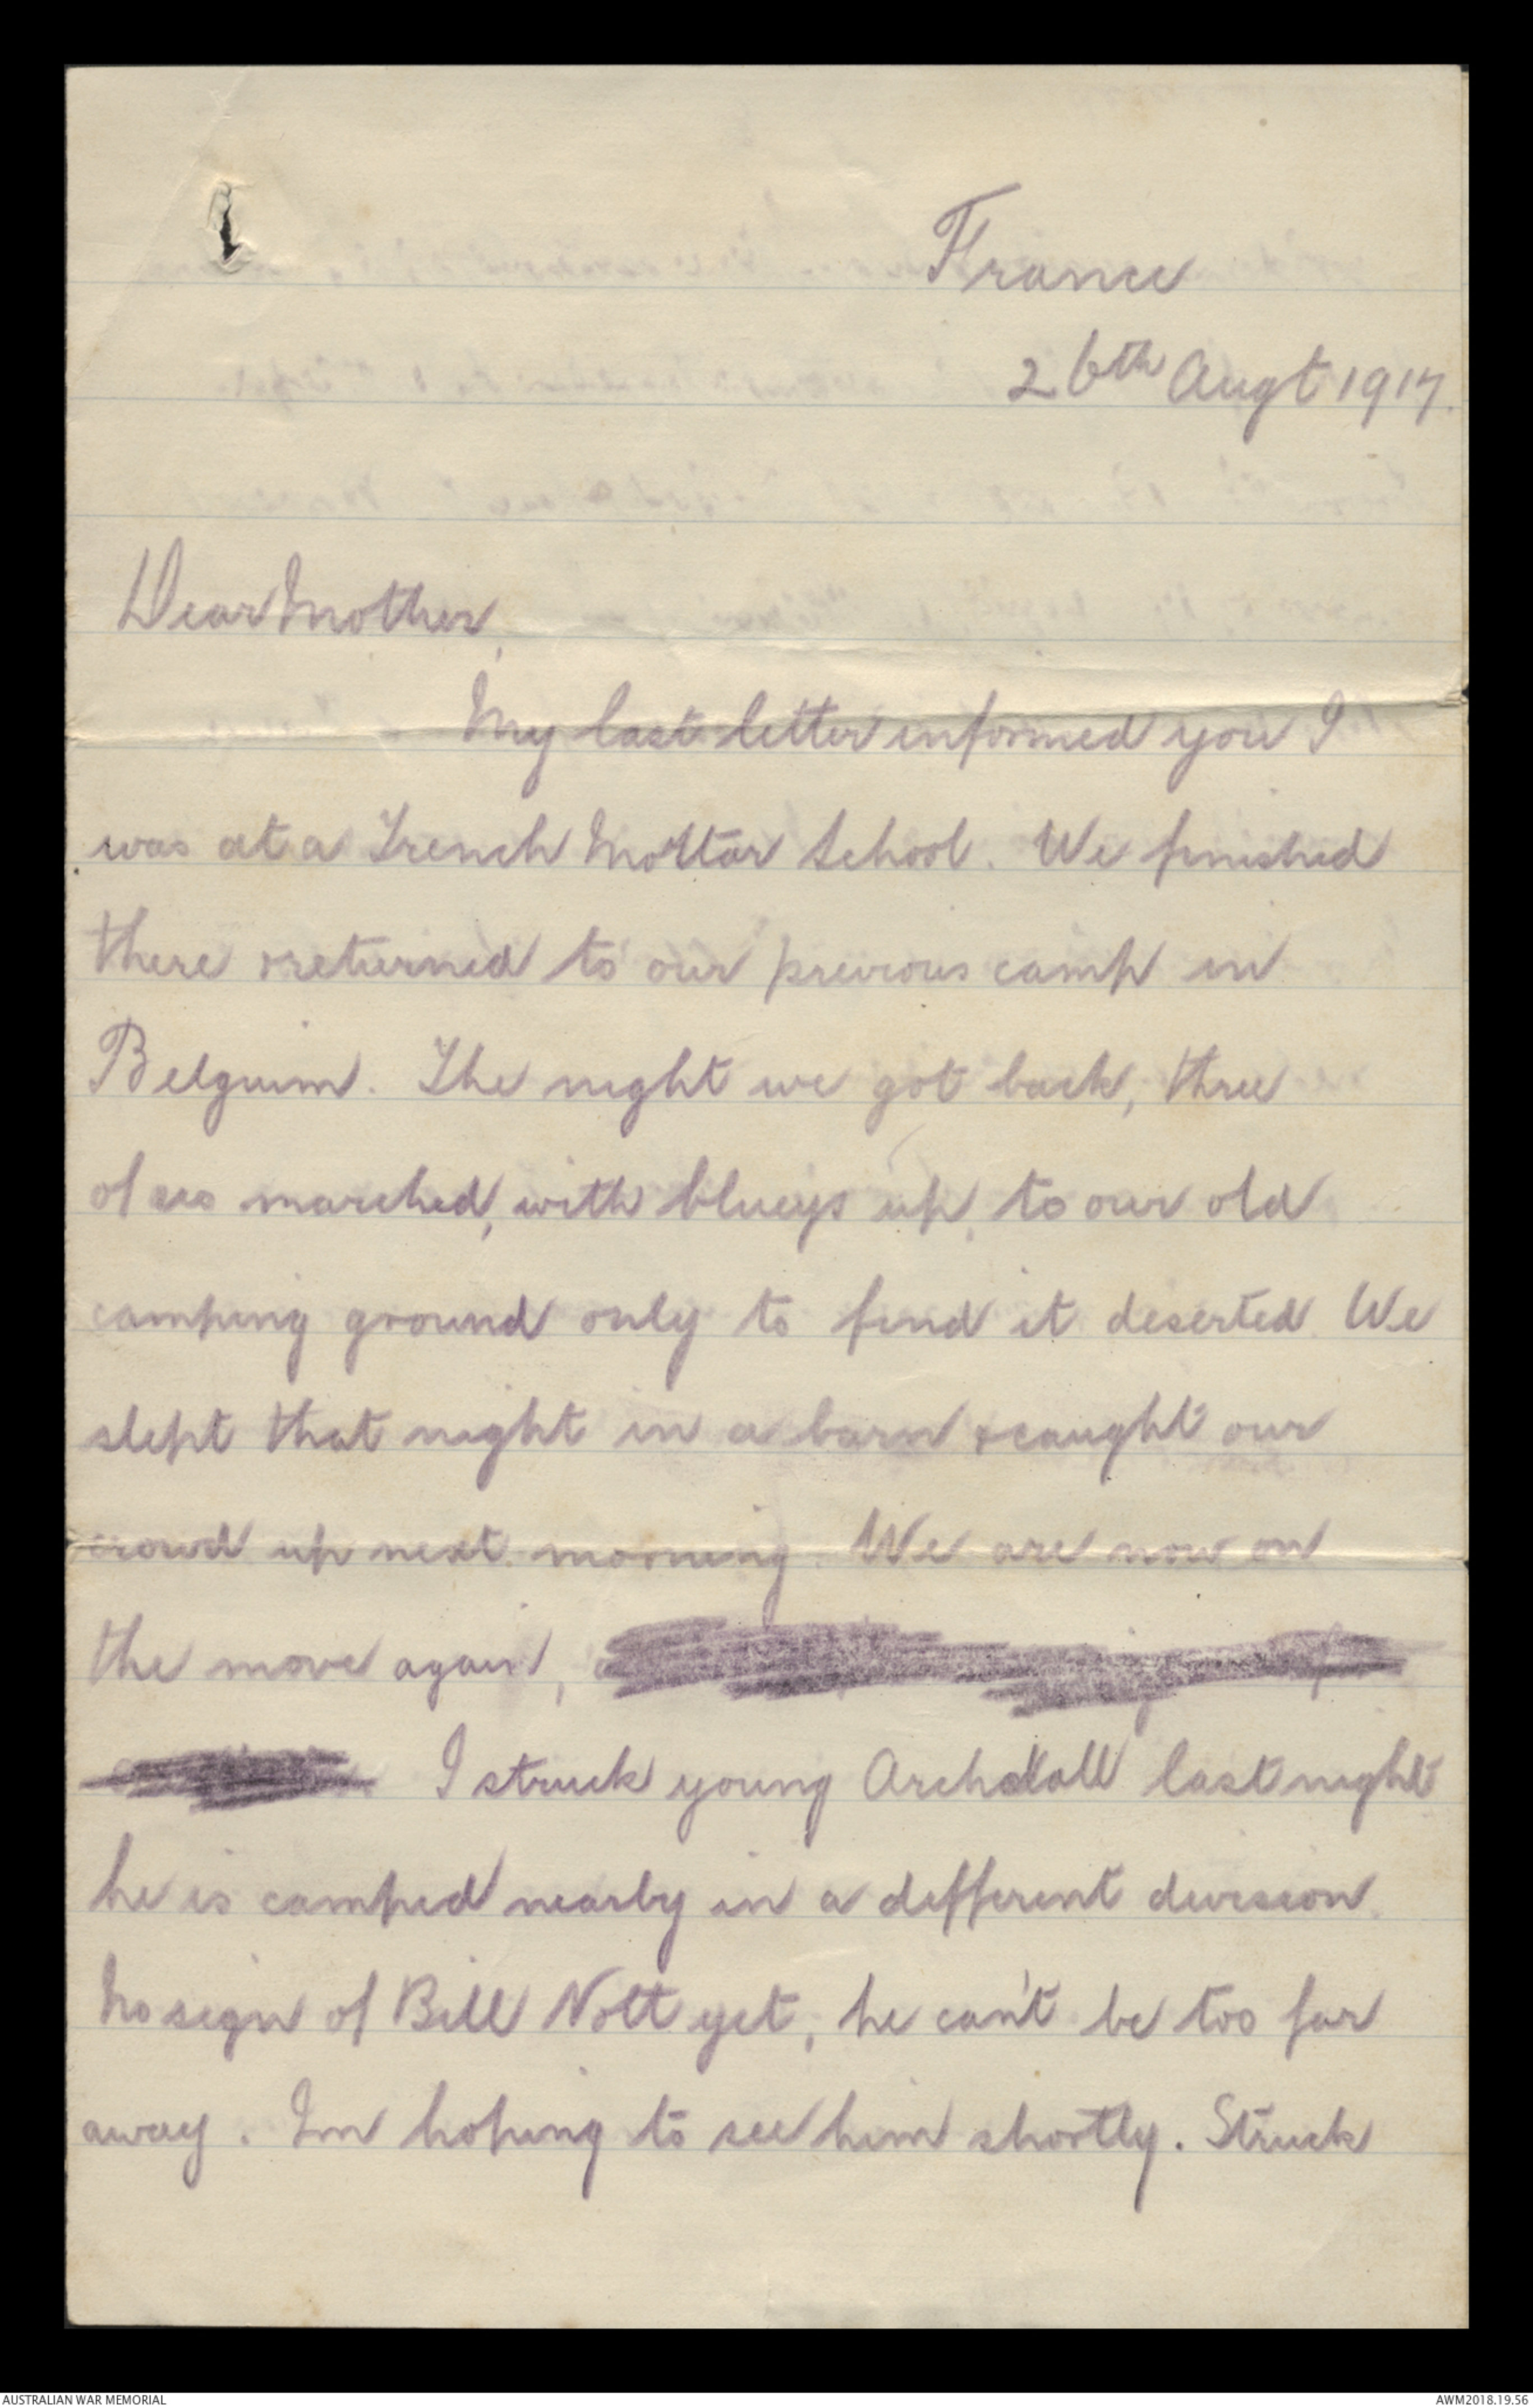 France
26th Augt 1917.
Dear Mother,
My last letter informed you I
was at a Trench Mottar School. We finished
there & returned to our previous camp in
Belguim. The night we got back, three
of us marched, with blueys up, to our old
camping ground only to find it deserted. We
slept that night in a barn & caught our
crowd up next morning. We are now on
the move again,
I struck young Archdall last night
he is camped nearby in a different division.
No sign of Bill Nott yet, he can't be too far
away. Im hoping to see him shortly. Struck
AUSTRALIAN WAR MEMORIAL
AWM2018.19.56